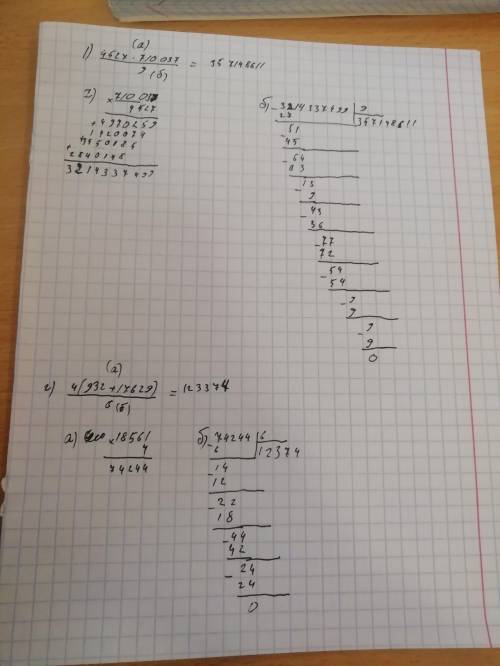 (а)
1) 4527 · 710 037 / 9 (б) = 357148611
× 710 037
4527
+ 4970259
1420074
3550185
+ 2840148
3214337499
б) - 3214337499 | 9
27 | 357148611
51
- 45
- 64
63
- 13
9
- 43
36
- 77
72
- 54
- 54
- 9
9
- 9
9
0
(а)
2) 4(932 + 17629) / 6 (б) = 12374
а) × 18561
4
74244
б) - 74244 | 6
6 | 12374
- 14
12
- 22
18
- 44
42
- 24
24
0